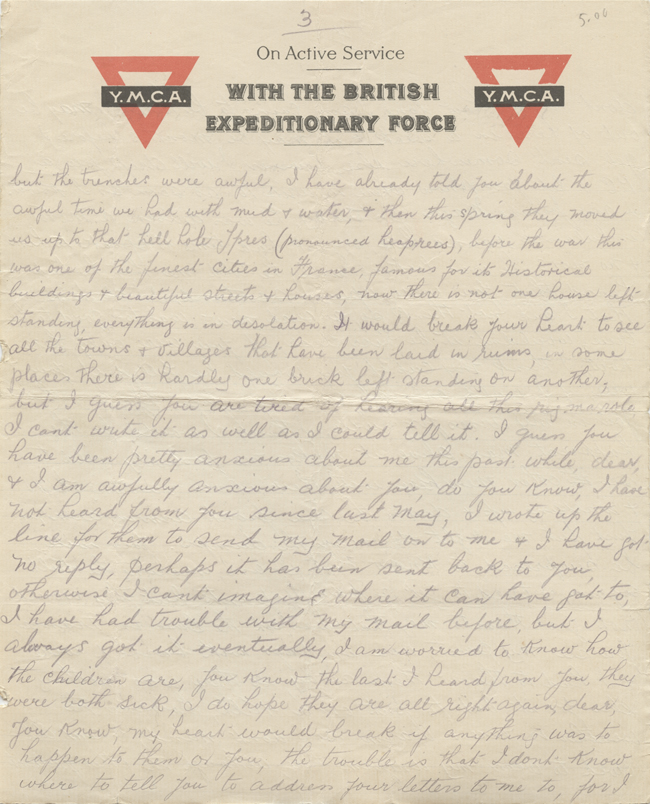 3
5.00
On Active Service
WITH THE BRITISH
EXPEDITIONARY FORCE
Y.M.C.A.
Y.M.C.A.
but the trenches were awful, I have already told you about the
awful time we had with mud & water, & then this spring they moved
us up to that hell hole Ypres (pronounced heaprees), before the war this
was one of the finest cities in France, famous for its Historical
buildings & beautiful streets & houses, now there is not one house left
standing, everything is in desolation. It would break your heart to see
all the towns & villages that have been laid in ruins, in some
places there is hardly one brick left standing on another,
but I guess you are tired of hearing all this rigmarole
I cant write it as well as I could tell it. I guess you
have been pretty anxious about me this past while, dear,
& I am awfully anxious about you, do you know, I have
not heard from you since last May, I wrote up the
line for them to send my mail on to me & I have got
no reply, perhaps it has been sent back to you,
otherwise I cant imagine where it can have got to,
I have had trouble with my mail before, but I
always got it eventually, I am worried to know how
the children are, you know the last I heard from you, they
were both sick, I do hope they are all right again, dear,
you know, my heart would break if anything was to
happen to them or you, the trouble is that I dont know
where to tell you to address your letters to me to, for I